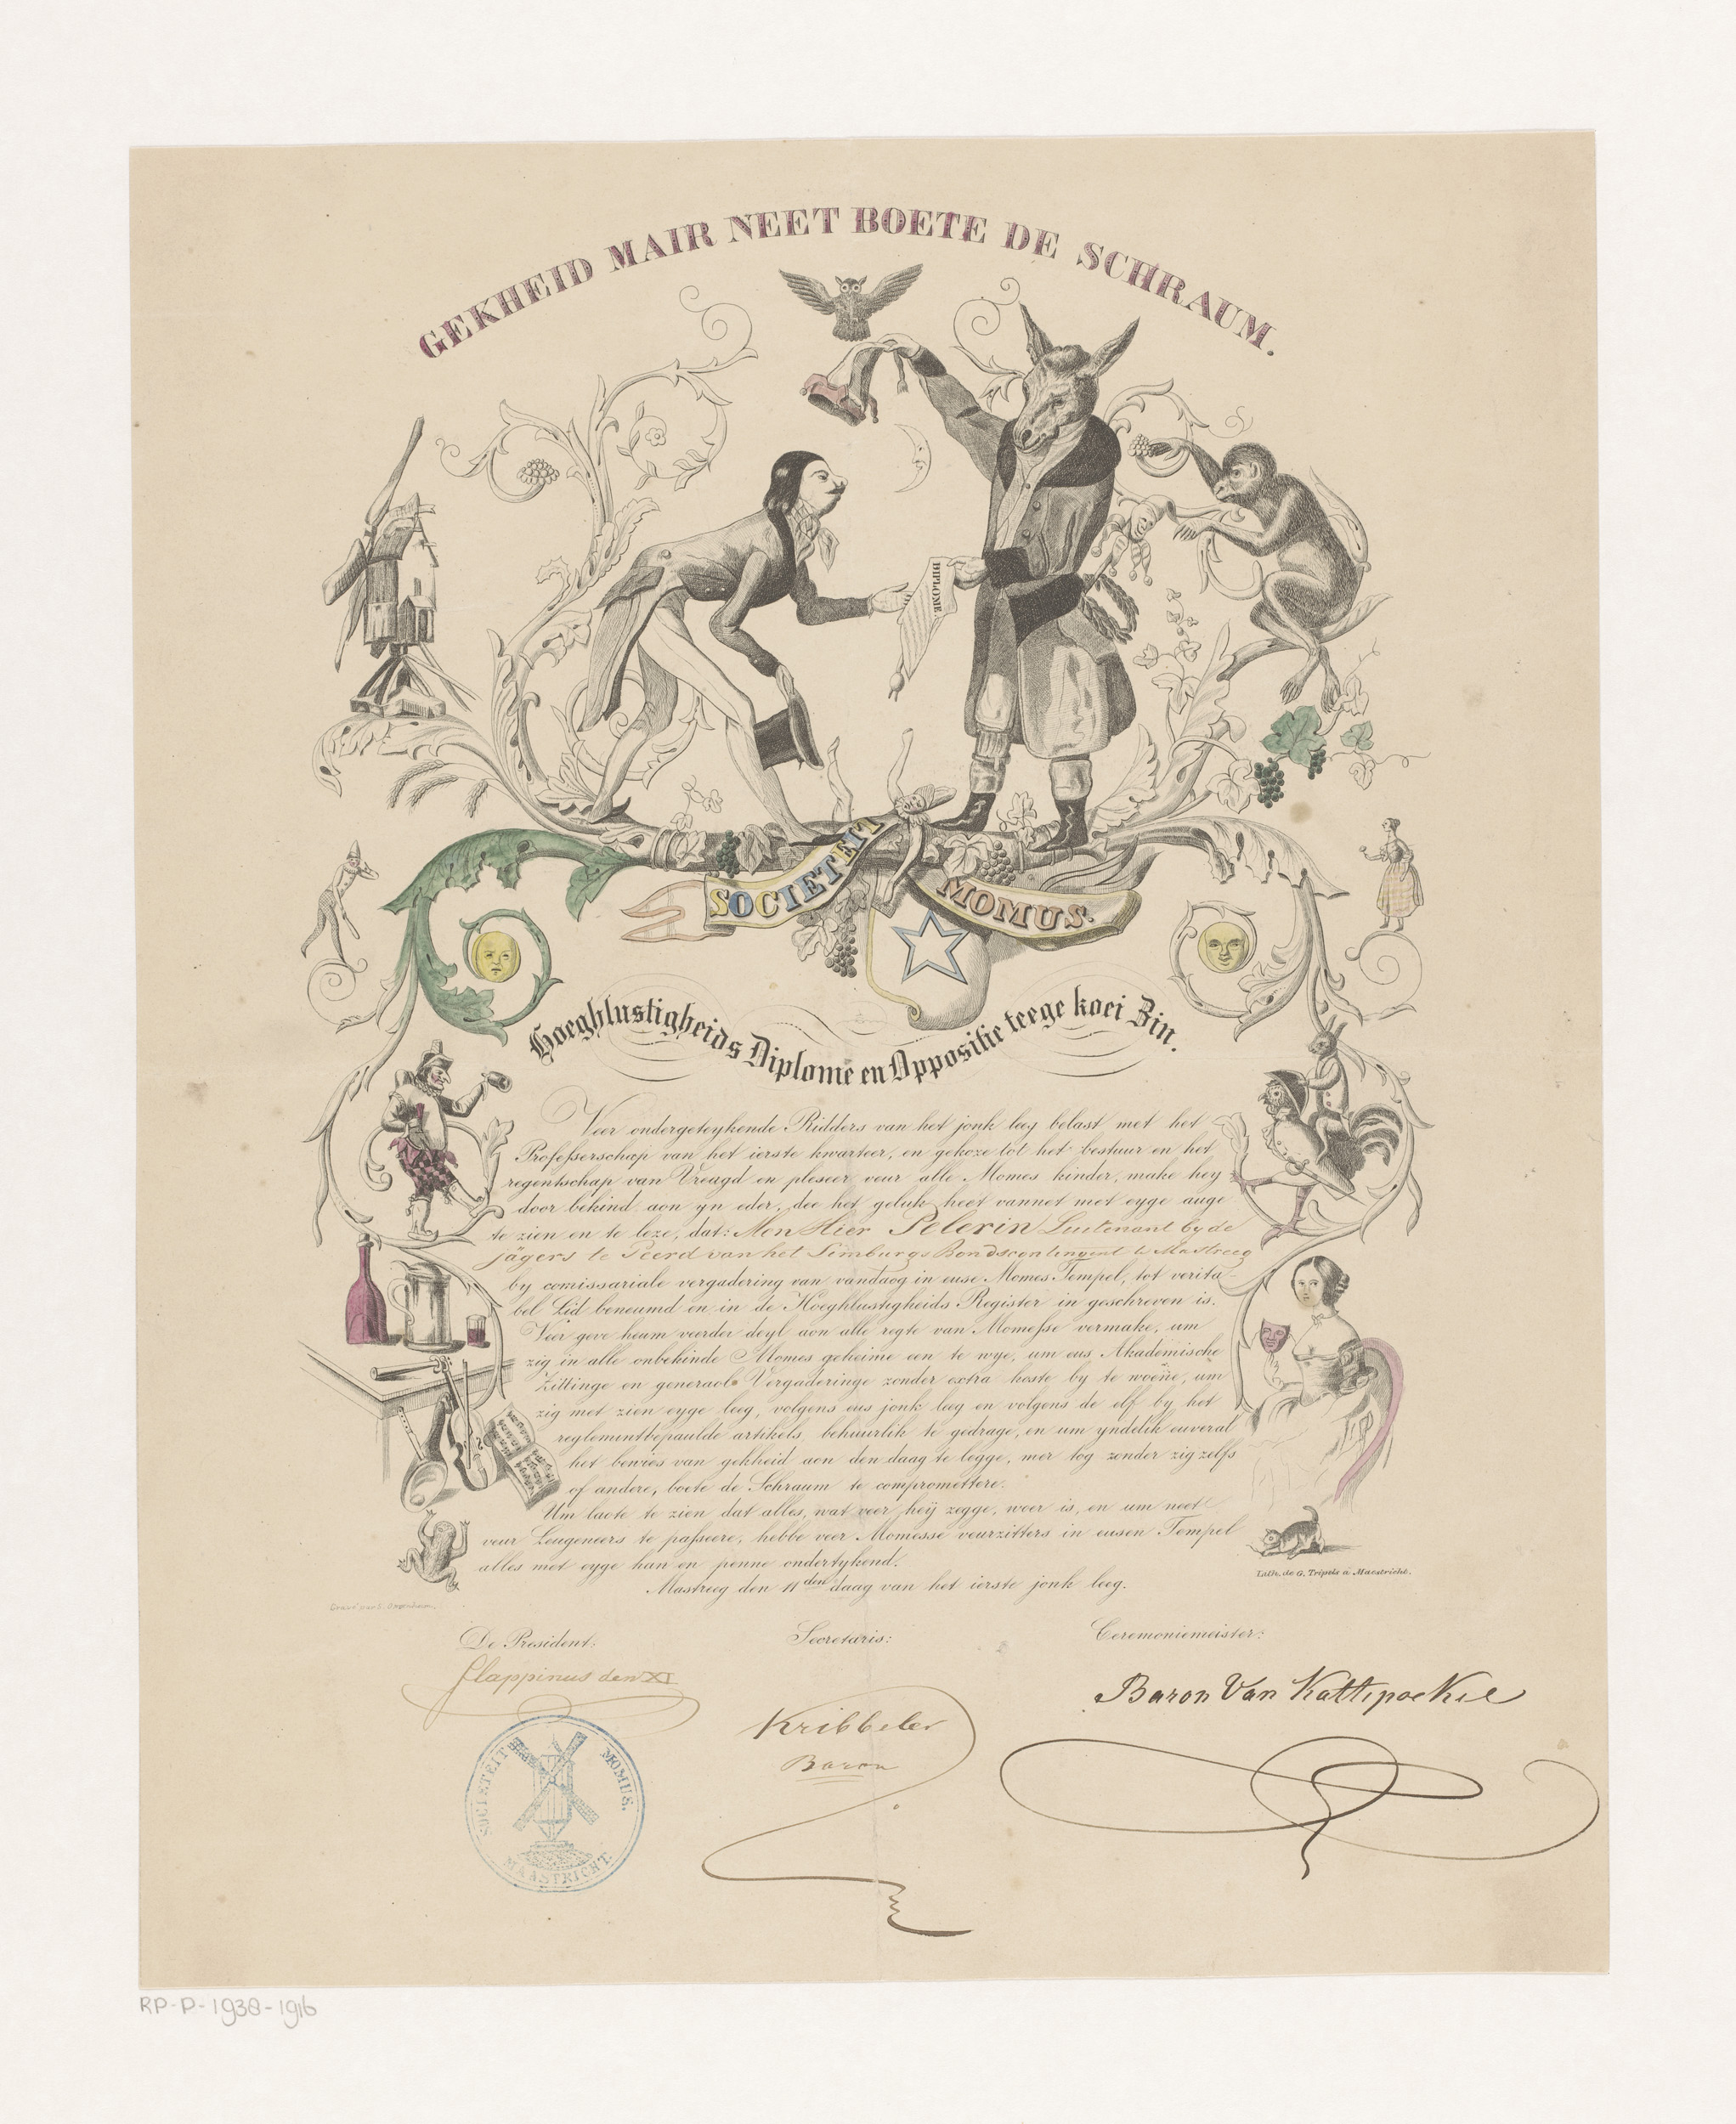 GEKHEID MAIR NEET BOETE DE SCHRAUM.
DIPLOME.
SOCIETEIT MOMUS.
Hoeghlustigheids Diplome en Oppositie teege koei Zin.
Veer ondergeteykende Ridders van het jonk leeg belast met het
Professerschap van het ierste kwarteer, en gekoze tot het bestuur en het
regentschap van Vreugd en pleseer veur alle Momes kinder, make hey
door bekind aon yn eder, dee het geluk heet vannet met eyge auge
te zien en te leze, dat: Men Hier Pelerin Lieutenant by de
jägers te Peerd van het Limburgs Bondscontingent te Mastreeg
by comissariale vergadering van vandaog in euse Momes Tempel, tot verita-
bel Lid beneumd en in de Hoeghlustigheids Register in geschreven is.
Veer geve heum veerder deyl aon alle regte van Momesse vermake, um
zig in alle onbekinde Momes geheime een te wye, um eus Akademische
Zittinge en generaol Vergaderinge zonder extra koste by te woene, um
zig met zien eyge leeg, volgens eus jonk leeg en volgens de elf by het
reglemintbepaulde artikels, behuurlik te gedrage, en um yndelik euveral
het bewies van gekheid aon den daag te legge, mer tog zonder zig zelfs
of andere, boete de Schraum te compromettere.
Um laote te zien dat alles, wat veer heij zegge, woer is, en um neet
veur Leugeneers te passeere, hebbe veer Momesse veurzitters in eusen Tempel
alles met eyge han en penne ondertykend.
Mastreeg den 11den daag van het ierste jonk leeg.
Lith. de G. Tripels à Maestricht.
De President:
Secretaris:
Ceremoniemeister:
Flappinus den XI
Kribbeler
Baron
Baron Van Kattepoekel
SOCIETEIT MOMUS.
MAASTRICHT.
RP-P-1938-1916